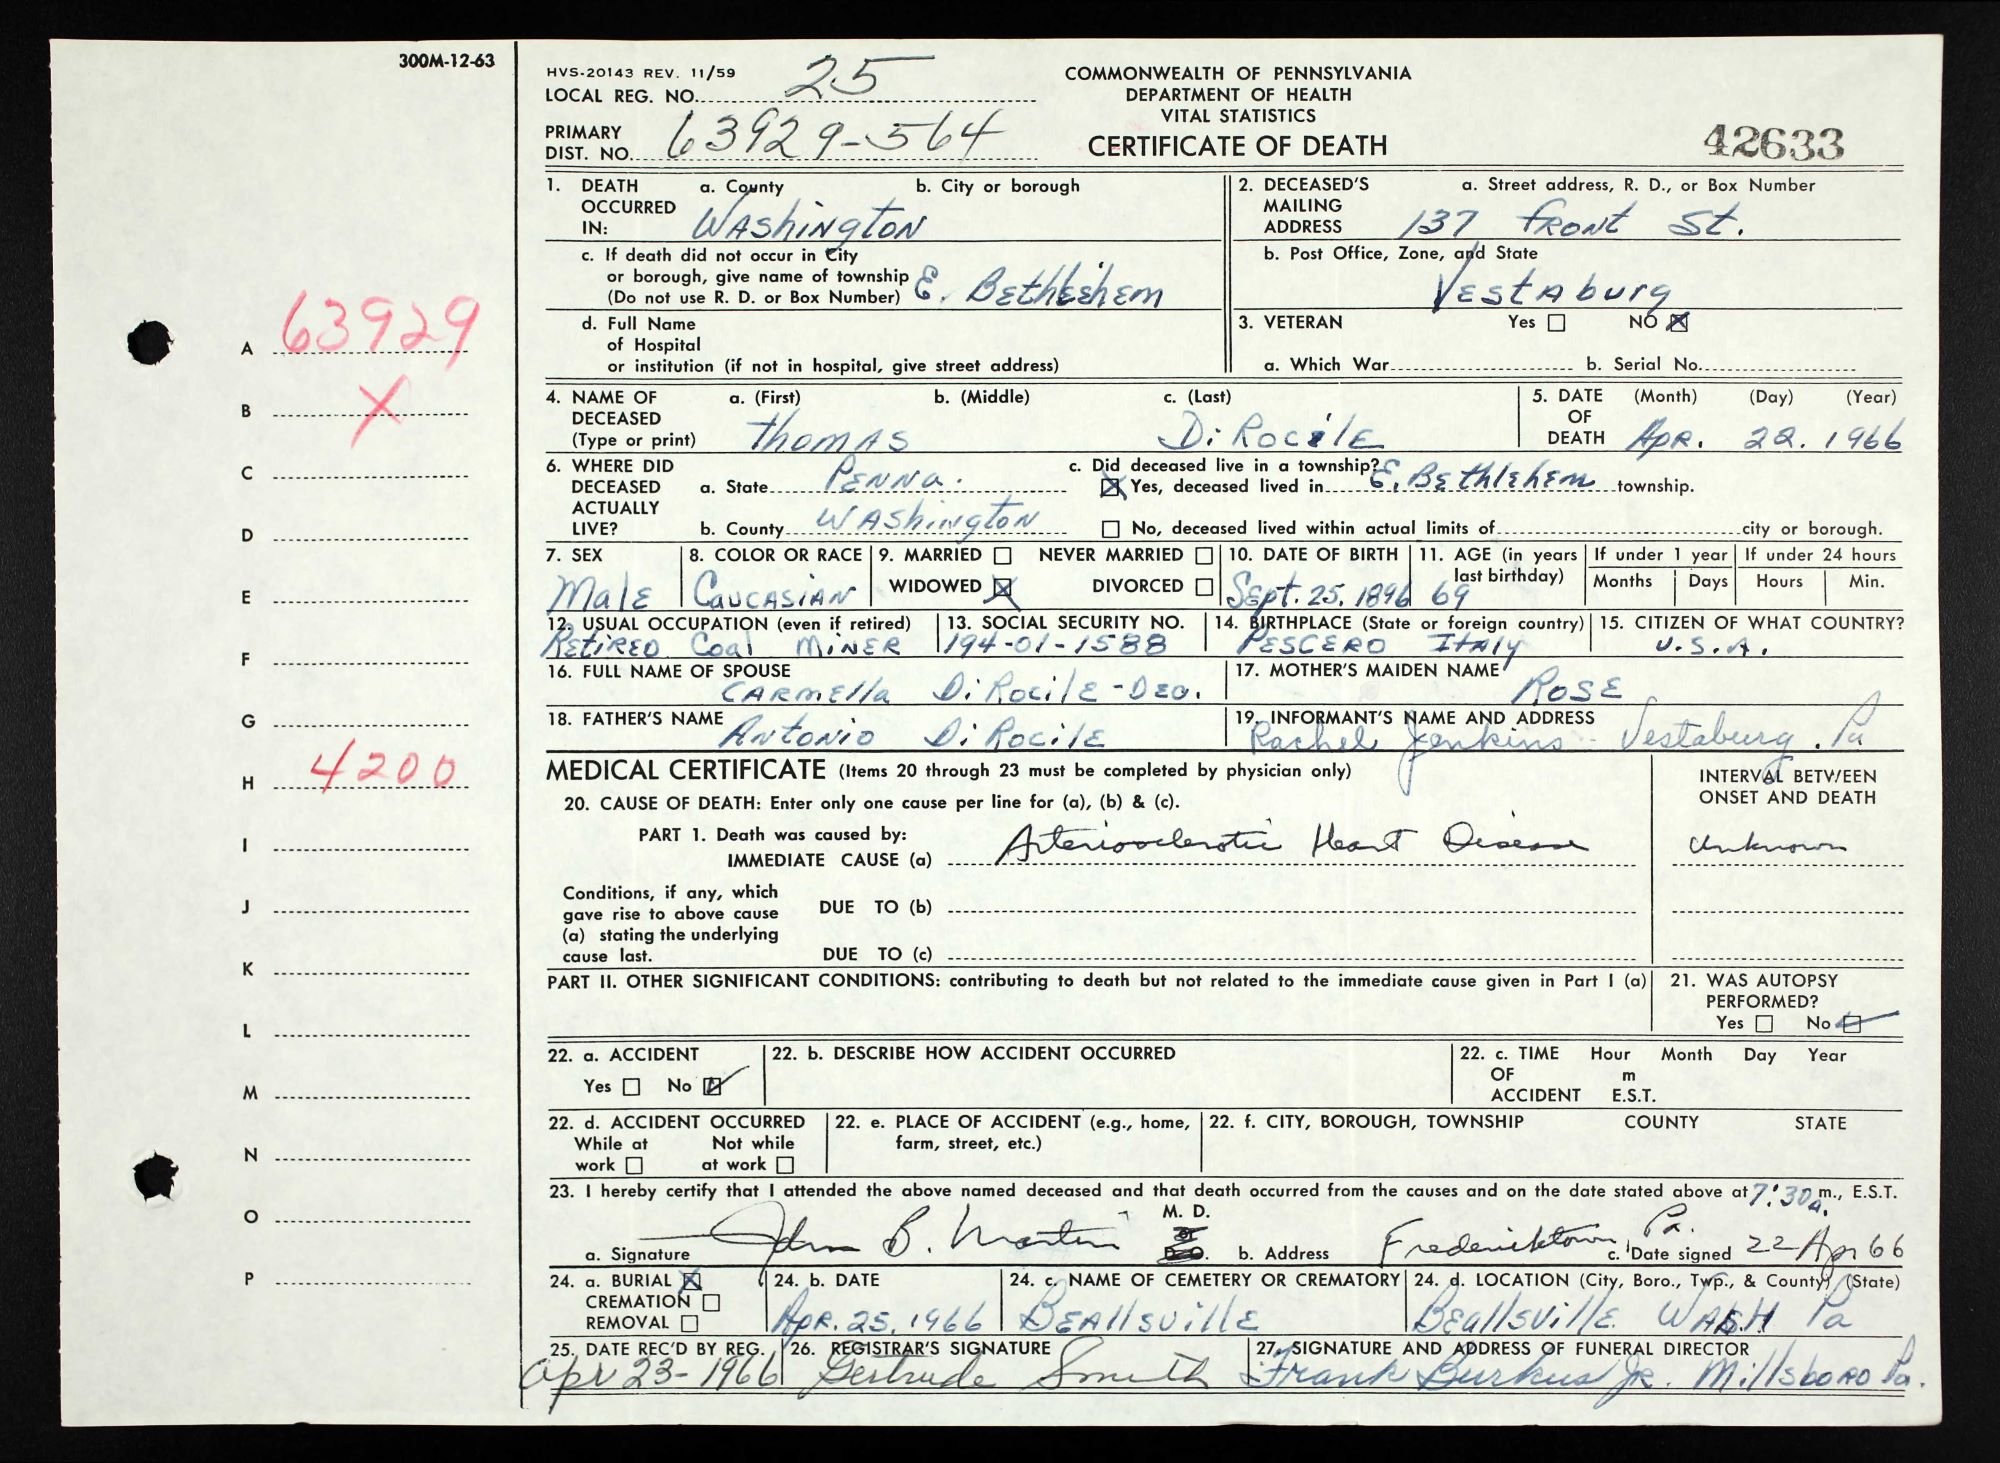 300M-12-63
HVS-20143 REV. 11/59
LOCAL REG. NO. 25
PRIMARY
DIST. NO. 63929-564
COMMONWEALTH OF PENNSYLVANIA
DEPARTMENT OF HEALTH
VITAL STATISTICS
CERTIFICATE OF DEATH
42633
1. DEATH OCCURRED IN: a. County b. City or borough
Washington
c. If death did not occur in City
or borough, give name of township
(Do not use R. D. or Box Number) E. Bethlehem
d. Full Name
of Hospital
or institution (if not in hospital, give street address)
2. DECEASED'S MAILING ADDRESS a. Street address, R. D., or Box Number
137 Front St.
b. Post Office, Zone, and State
Vestaburg
3. VETERAN Yes NO X
a. Which War b. Serial No.
4. NAME OF DECEASED (Type or print) a. (First) b. (Middle) c. (Last)
Thomas DiRocile
5. DATE OF DEATH (Month) (Day) (Year)
Apr. 22. 1966
6. WHERE DID DECEASED ACTUALLY LIVE?
a. State Penna.
b. County Washington
c. Did deceased live in a township?
X Yes, deceased lived in E. Bethlehem township.
No, deceased lived within actual limits of city or borough.
7. SEX
Male
8. COLOR OR RACE
Caucasian
9. MARRIED NEVER MARRIED
WIDOWED X DIVORCED
10. DATE OF BIRTH
Sept. 25, 1896
11. AGE (in years last birthday)
69
If under 1 year
Months Days
If under 24 hours
Hours Min.
12. USUAL OCCUPATION (even if retired)
Retired Coal Miner
13. SOCIAL SECURITY NO.
194-01-1588
14. BIRTHPLACE (State or foreign country)
Pescero Italy
15. CITIZEN OF WHAT COUNTRY?
U.S.A.
16. FULL NAME OF SPOUSE
Carmella DiRocile-Dec.
17. MOTHER'S MAIDEN NAME
Rose
18. FATHER'S NAME
Antonio DiRocile
19. INFORMANT'S NAME AND ADDRESS
Rachel Jenkins - Vestaburg, Pa
MEDICAL CERTIFICATE (Items 20 through 23 must be completed by physician only)
INTERVAL BETWEEN
ONSET AND DEATH
20. CAUSE OF DEATH: Enter only one cause per line for (a), (b) & (c).
PART 1. Death was caused by:
IMMEDIATE CAUSE (a) Arteriosclerotic Heart Disease Unknown
Conditions, if any, which
gave rise to above cause
(a) stating the underlying
cause last.
DUE TO (b)
DUE TO (c)
PART II. OTHER SIGNIFICANT CONDITIONS: contributing to death but not related to the immediate cause given in Part I (a)
21. WAS AUTOPSY
PERFORMED?
Yes No
22. a. ACCIDENT
Yes No
22. b. DESCRIBE HOW ACCIDENT OCCURRED
22. c. TIME OF ACCIDENT Hour Month Day Year
m
E.S.T.
22. d. ACCIDENT OCCURRED
While at work Not while at work
22. e. PLACE OF ACCIDENT (e.g., home,
farm, street, etc.)
22. f. CITY, BOROUGH, TOWNSHIP COUNTY STATE
23. I hereby certify that I attended the above named deceased and that death occurred from the causes and on the date stated above at 7:30 A. m., E.S.T.
a. Signature John B. Martin M. D. or D.O. b. Address Fredericktown, Pa. c. Date signed 22 Apr 66
24. a. BURIAL X
CREMATION
REMOVAL
24. b. DATE
Apr. 25, 1966
24. c. NAME OF CEMETERY OR CREMATORY
Beallsville
24. d. LOCATION (City, Boro., Twp., & County) (State)
Beallsville Wash Pa
25. DATE REC'D BY REG.
Apr 23-1966
26. REGISTRAR'S SIGNATURE
Gertrude Smith
27. SIGNATURE AND ADDRESS OF FUNERAL DIRECTOR
Frank Burkus Jr. Millsboro Pa.
A 63929
B X
C
D
E
F
G
H 4200
I
J
K
L
M
N
O
P